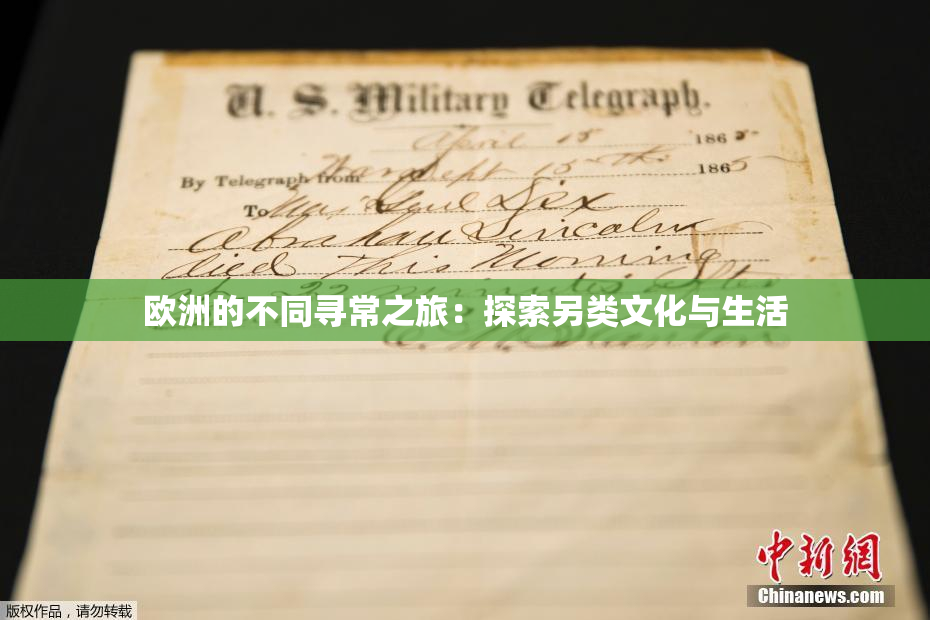 U. S. Military Telegraph.
April 15 1865
By Telegraph from War Dept 15th 1865
To Maj Genl Dix
Abraham Lincoln
died This Morning
at 22 minutes after
欧洲的不同寻常之旅：探索另类文化与生活
E. M. Stanton
中新网
Chinanews.com
版权作品，请勿转载